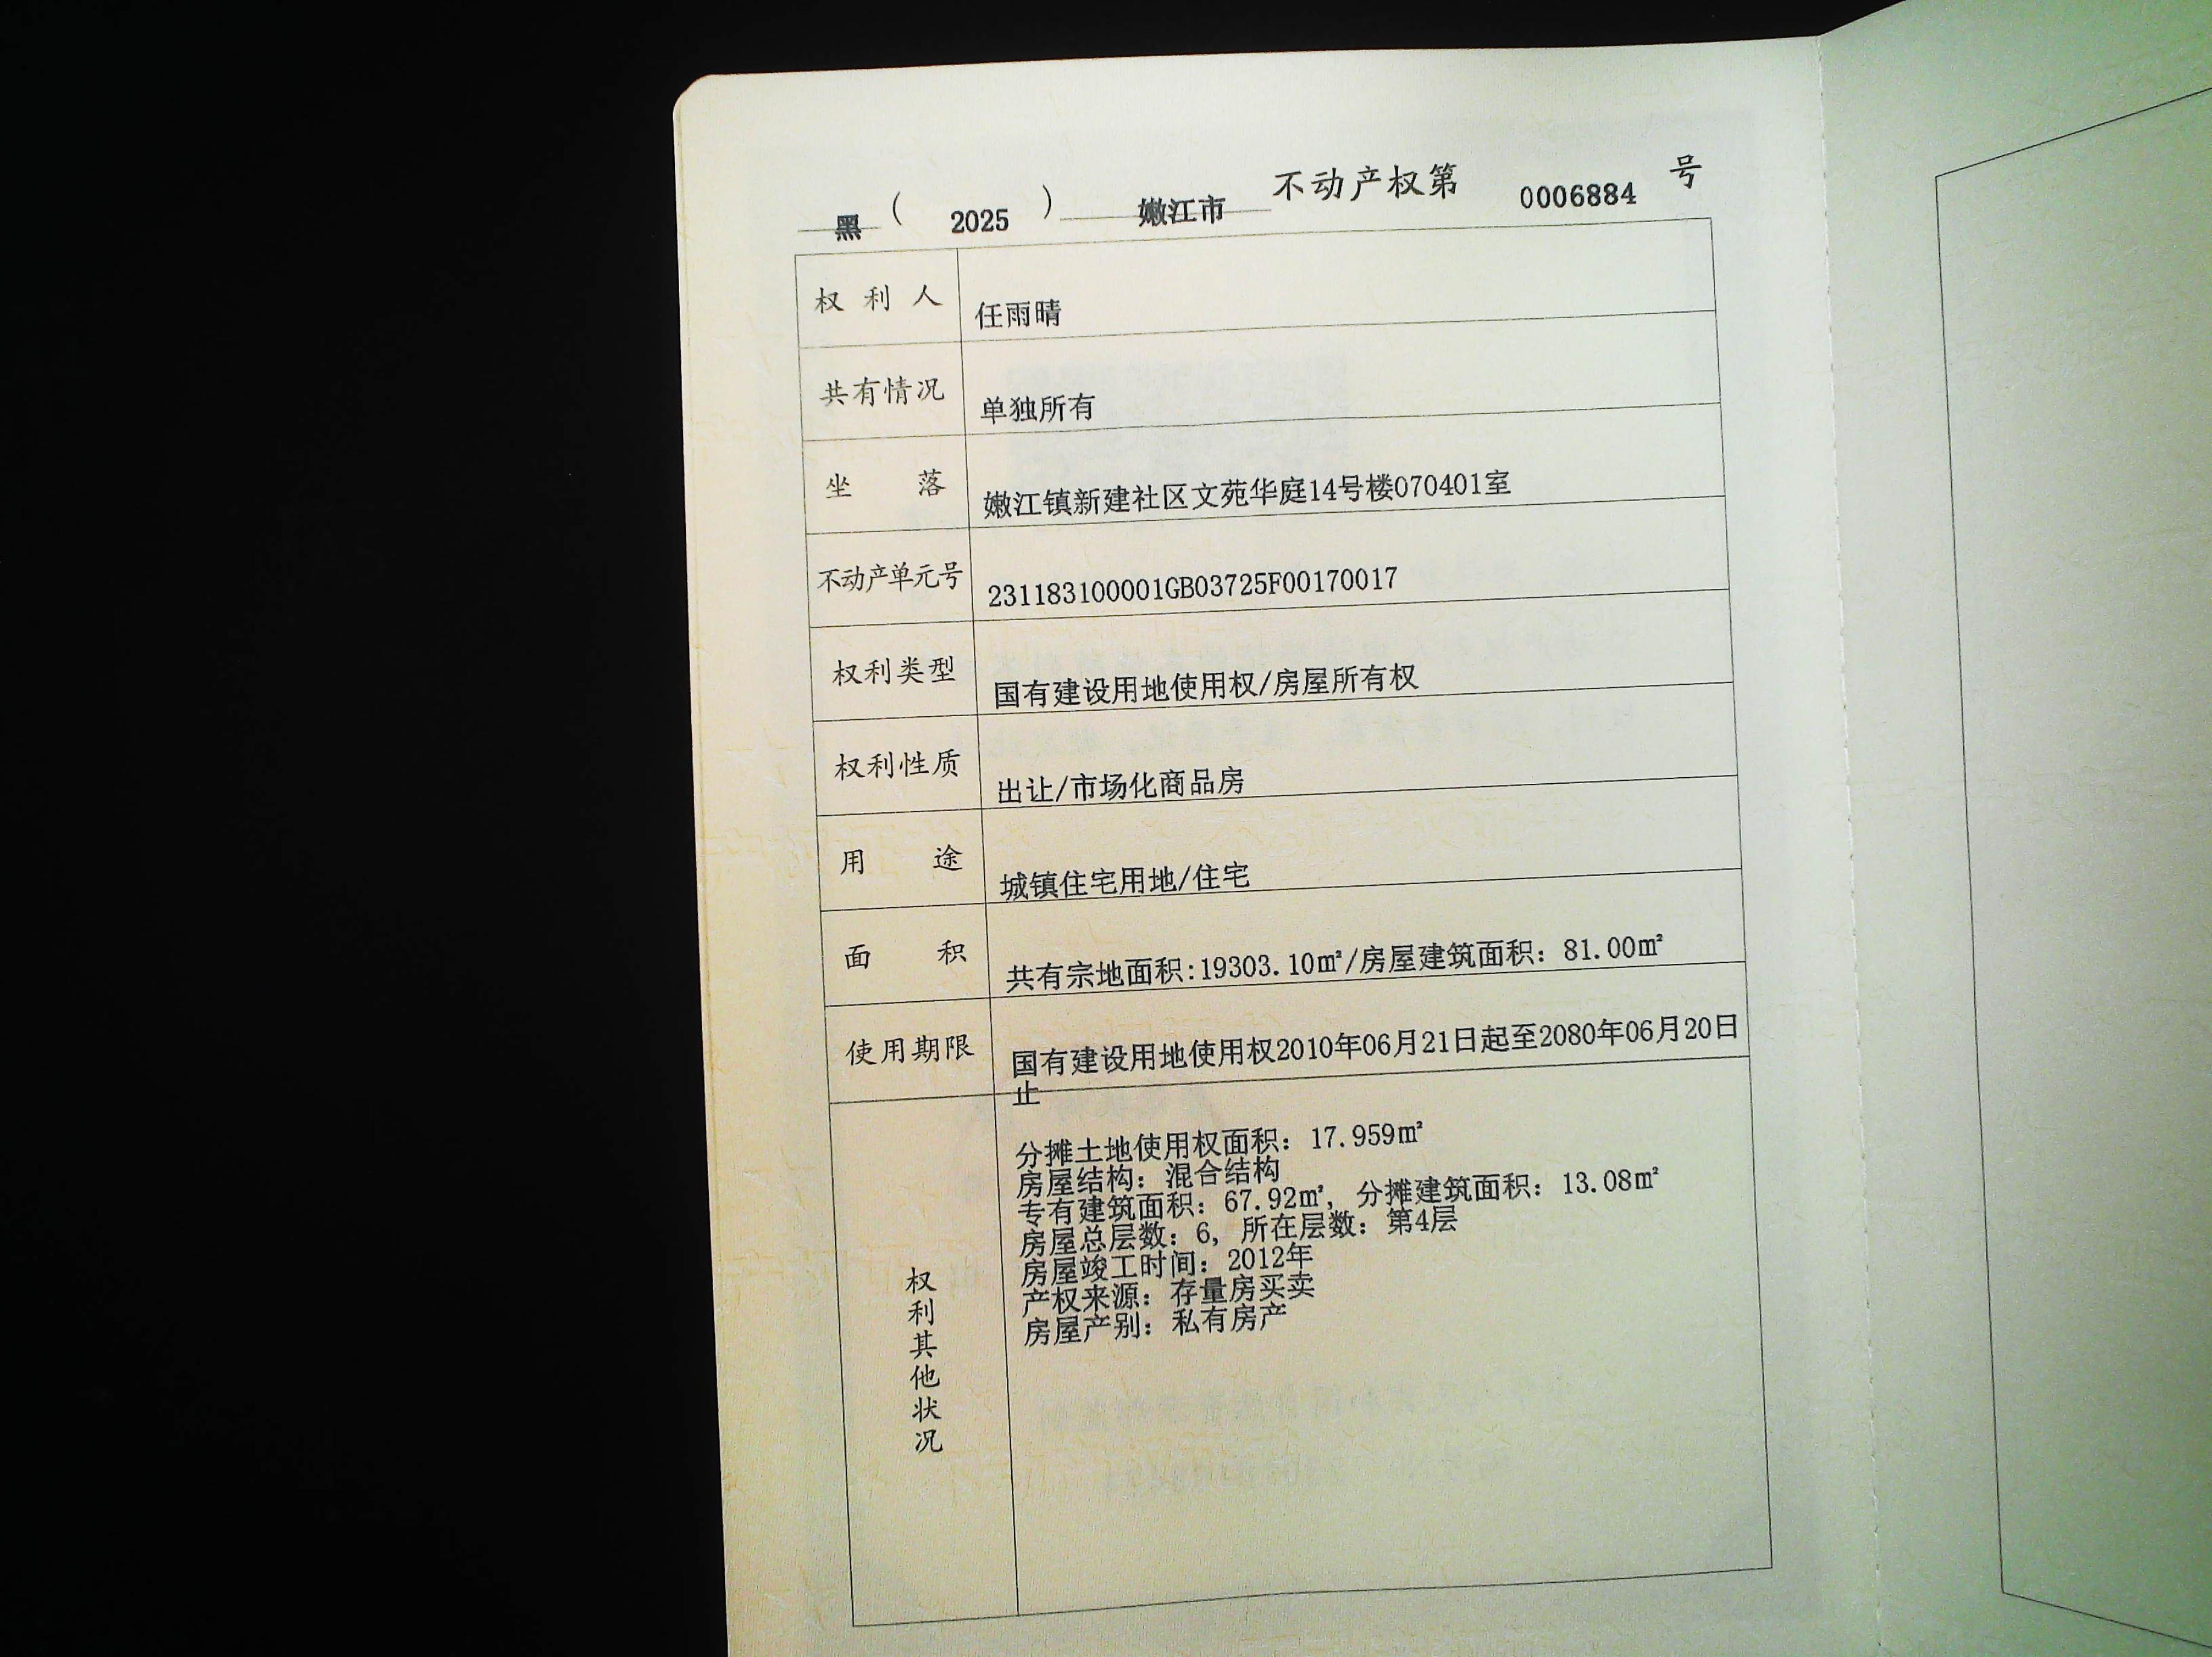 黑（2025）嫩江市不动产权第0006884号
权利人 任雨晴
共有情况 单独所有
坐落 嫩江镇新建社区文苑华庭14号楼070401室
不动产单元号 231183100001GB03725F00170017
权利类型 国有建设用地使用权/房屋所有权
权利性质 出让/市场化商品房
用途 城镇住宅用地/住宅
面积 共有宗地面积:19303.10㎡/房屋建筑面积：81.00㎡
使用期限 国有建设用地使用权2010年06月21日起至2080年06月20日
止
权利其他状况
分摊土地使用权面积：17.959㎡
房屋结构：混合结构
专有建筑面积：67.92㎡，分摊建筑面积：13.08㎡
房屋总层数：6，所在层数：第4层
房屋竣工时间：2012年
产权来源：存量房买卖
房屋产别：私有房产